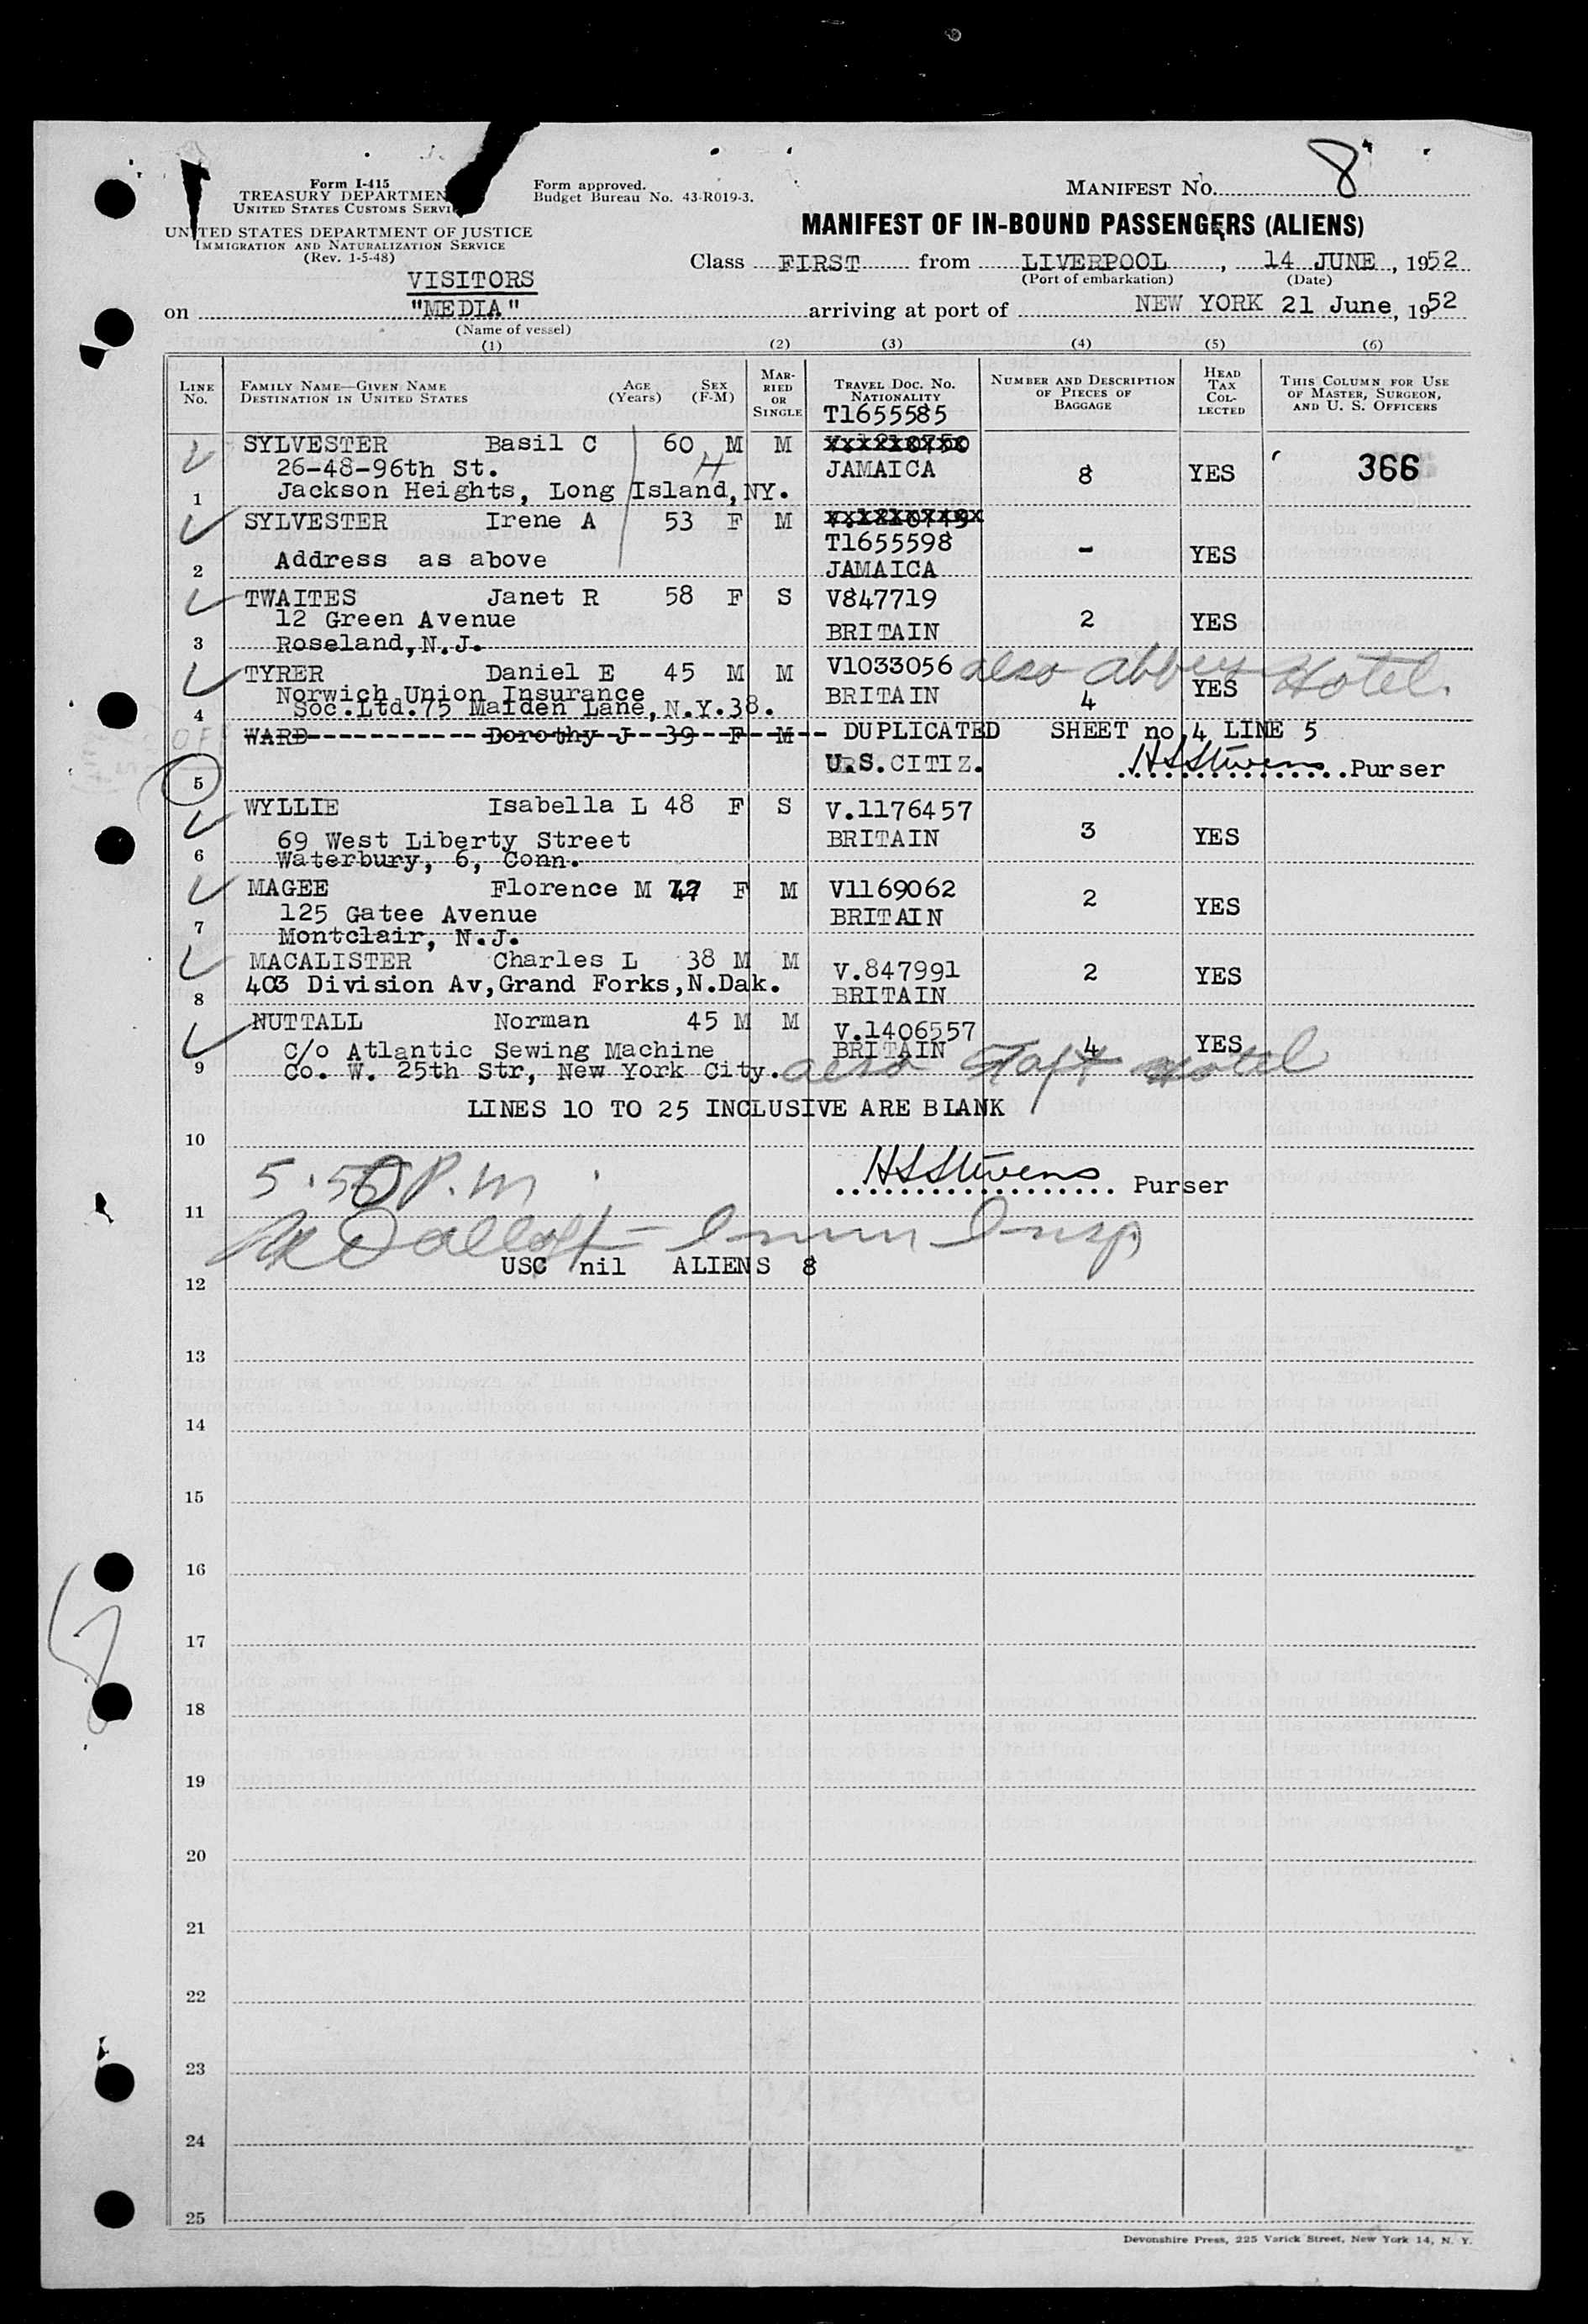 8
Form I-415
TREASURY DEPARTMENT
UNITED STATES CUSTOMS SERVICE
UNITED STATES DEPARTMENT OF JUSTICE
IMMIGRATION AND NATURALIZATION SERVICE
(Rev. 1-5-48)
Form approved.
Budget Bureau No. 43-R019-3.
MANIFEST NO.
MANIFEST OF IN-BOUND PASSENGERS (ALIENS)
Class FIRST from LIVERPOOL, 14 JUNE, 1952
(Port of embarkation) (Date)
VISITORS
on "MEDIA" arriving at port of NEW YORK 21 June, 1952
(Name of vessel)
(1) (2) (3) (4) (5) (6)
LINE NO. FAMILY NAME—GIVEN NAME DESTINATION IN UNITED STATES AGE (Years) SEX (F-M) MARRIED OR SINGLE TRAVEL DOC. NO. NATIONALITY NUMBER AND DESCRIPTION OF PIECES OF BAGGAGE HEAD TAX COLLECTED THIS COLUMN FOR USE OF MASTER, SURGEON, AND U. S. OFFICERS
T1655585
SYLVESTER Basil C 60 M M
26-48-96th St. H JAMAICA 8 YES 366
1 Jackson Heights, Long Island, NY.
SYLVESTER Irene A 53 F M
T1655598
2 Address as above JAMAICA - YES
TWAITES Janet R 58 F S V847719
12 Green Avenue BRITAIN 2 YES
3 Roseland, N.J.
TYRER Daniel E 45 M M V1033056 also Abbey Hotel.
Norwich Union Insurance BRITAIN 4 YES
4 Soc.Ltd.75 Maiden Lane, N.Y.38.
WARD Dorothy J 39 F M DUPLICATED SHEET no 4 LINE 5
5 U.S.CITIZ. HSStivens Purser
WYLLIE Isabella L 48 F S V.1176457
69 West Liberty Street BRITAIN 3 YES
6 Waterbury, 6, Conn.
MAGEE Florence M F M V1169062 2 YES
125 Gatee Avenue BRITAIN
7 Montclair, N.J.
MACALISTER Charles L 38 M M V.847991 2 YES
8 403 Division Av, Grand Forks, N.Dak. BRITAIN
NUTTALL Norman 45 M M V.1406557
c/o Atlantic Sewing Machine BRITAIN 4 YES
9 Co. W. 25th Str, New York City. also Taft Hotel
LINES 10 TO 25 INCLUSIVE ARE BLANK
10
5.50 P.M
HSStivens Purser
11
Imm Insp
USC nil ALIENS 8
12
13
14
15
16
17
18
19
20
21
22
23
24
25
Devonshire Press, 225 Varick Street, New York 14, N. Y.